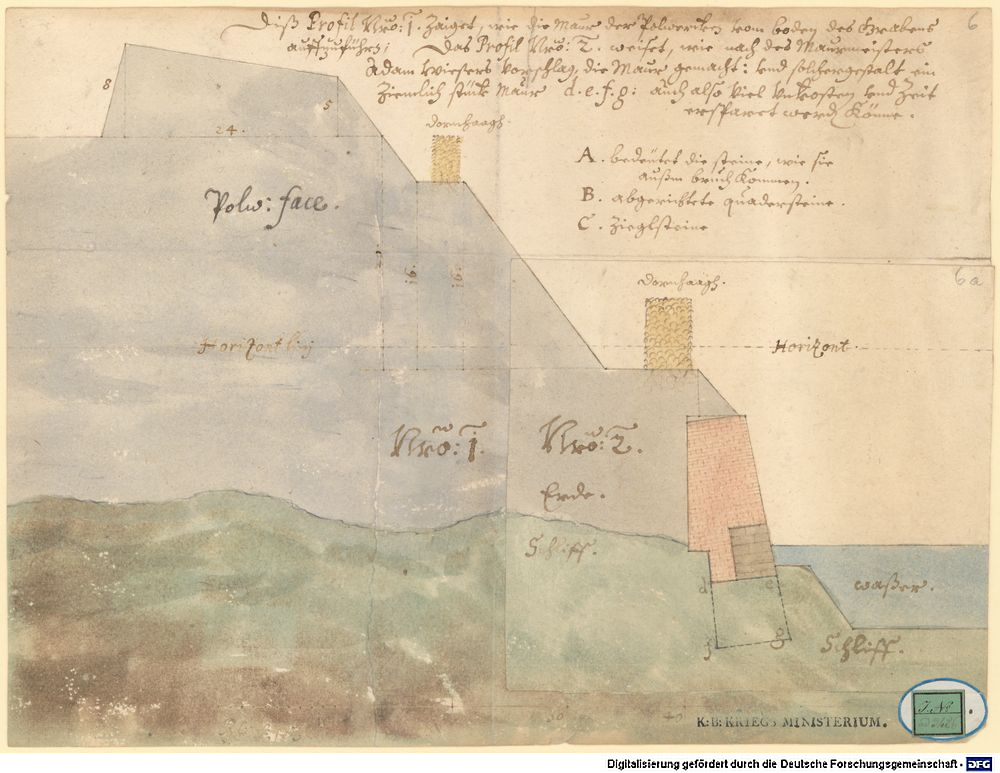 Diß Profil Nro: 1. Zaiget, wie die Maur der Polwercken vom boden des Grabens 6
auffzuführen; Das Profil Nro: 2. weiset, wie nach des Maurmeisters
Adam Wiesers vorschlag, die Maur gemacht: und solchergestalt ein
Ziemlich stück Maur d. e. f. g: auch also viel Unkosten und Zeit
ersparet werden Könne.
8
5
24.
dornhaagh.
A. bedeütet die steine, wie sie
außm bruch Kommen.
B. abgerichtete quadersteine.
C. Zieglsteine
Polw: face.
16.
16.
6a
dornhaagh.
Horizont liny
Horizont.
Nro: 1.
Nro: 2.
Erde.
Schliff.
waßer.
d
e
f
g
Schliff.
K: B: KRIEGS MINISTERIUM.
J. No
Digitalisierung gefördert durch die Deutsche Forschungsgemeinschaft - DFG